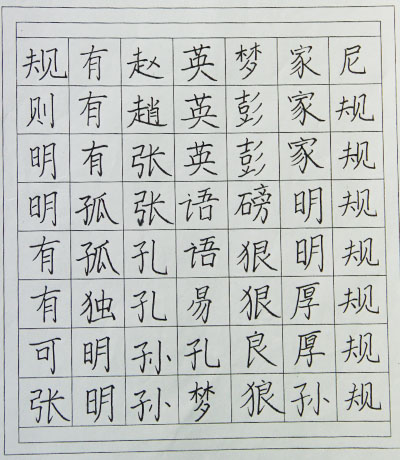 规有赵英梦家尼
则有趙英彭家规
明有张英彭家规
明孤张语磅明规
有孤孔语狠明规
有独孔易狠厚规
可明孙孔良厚规
张明孙梦狼孙规